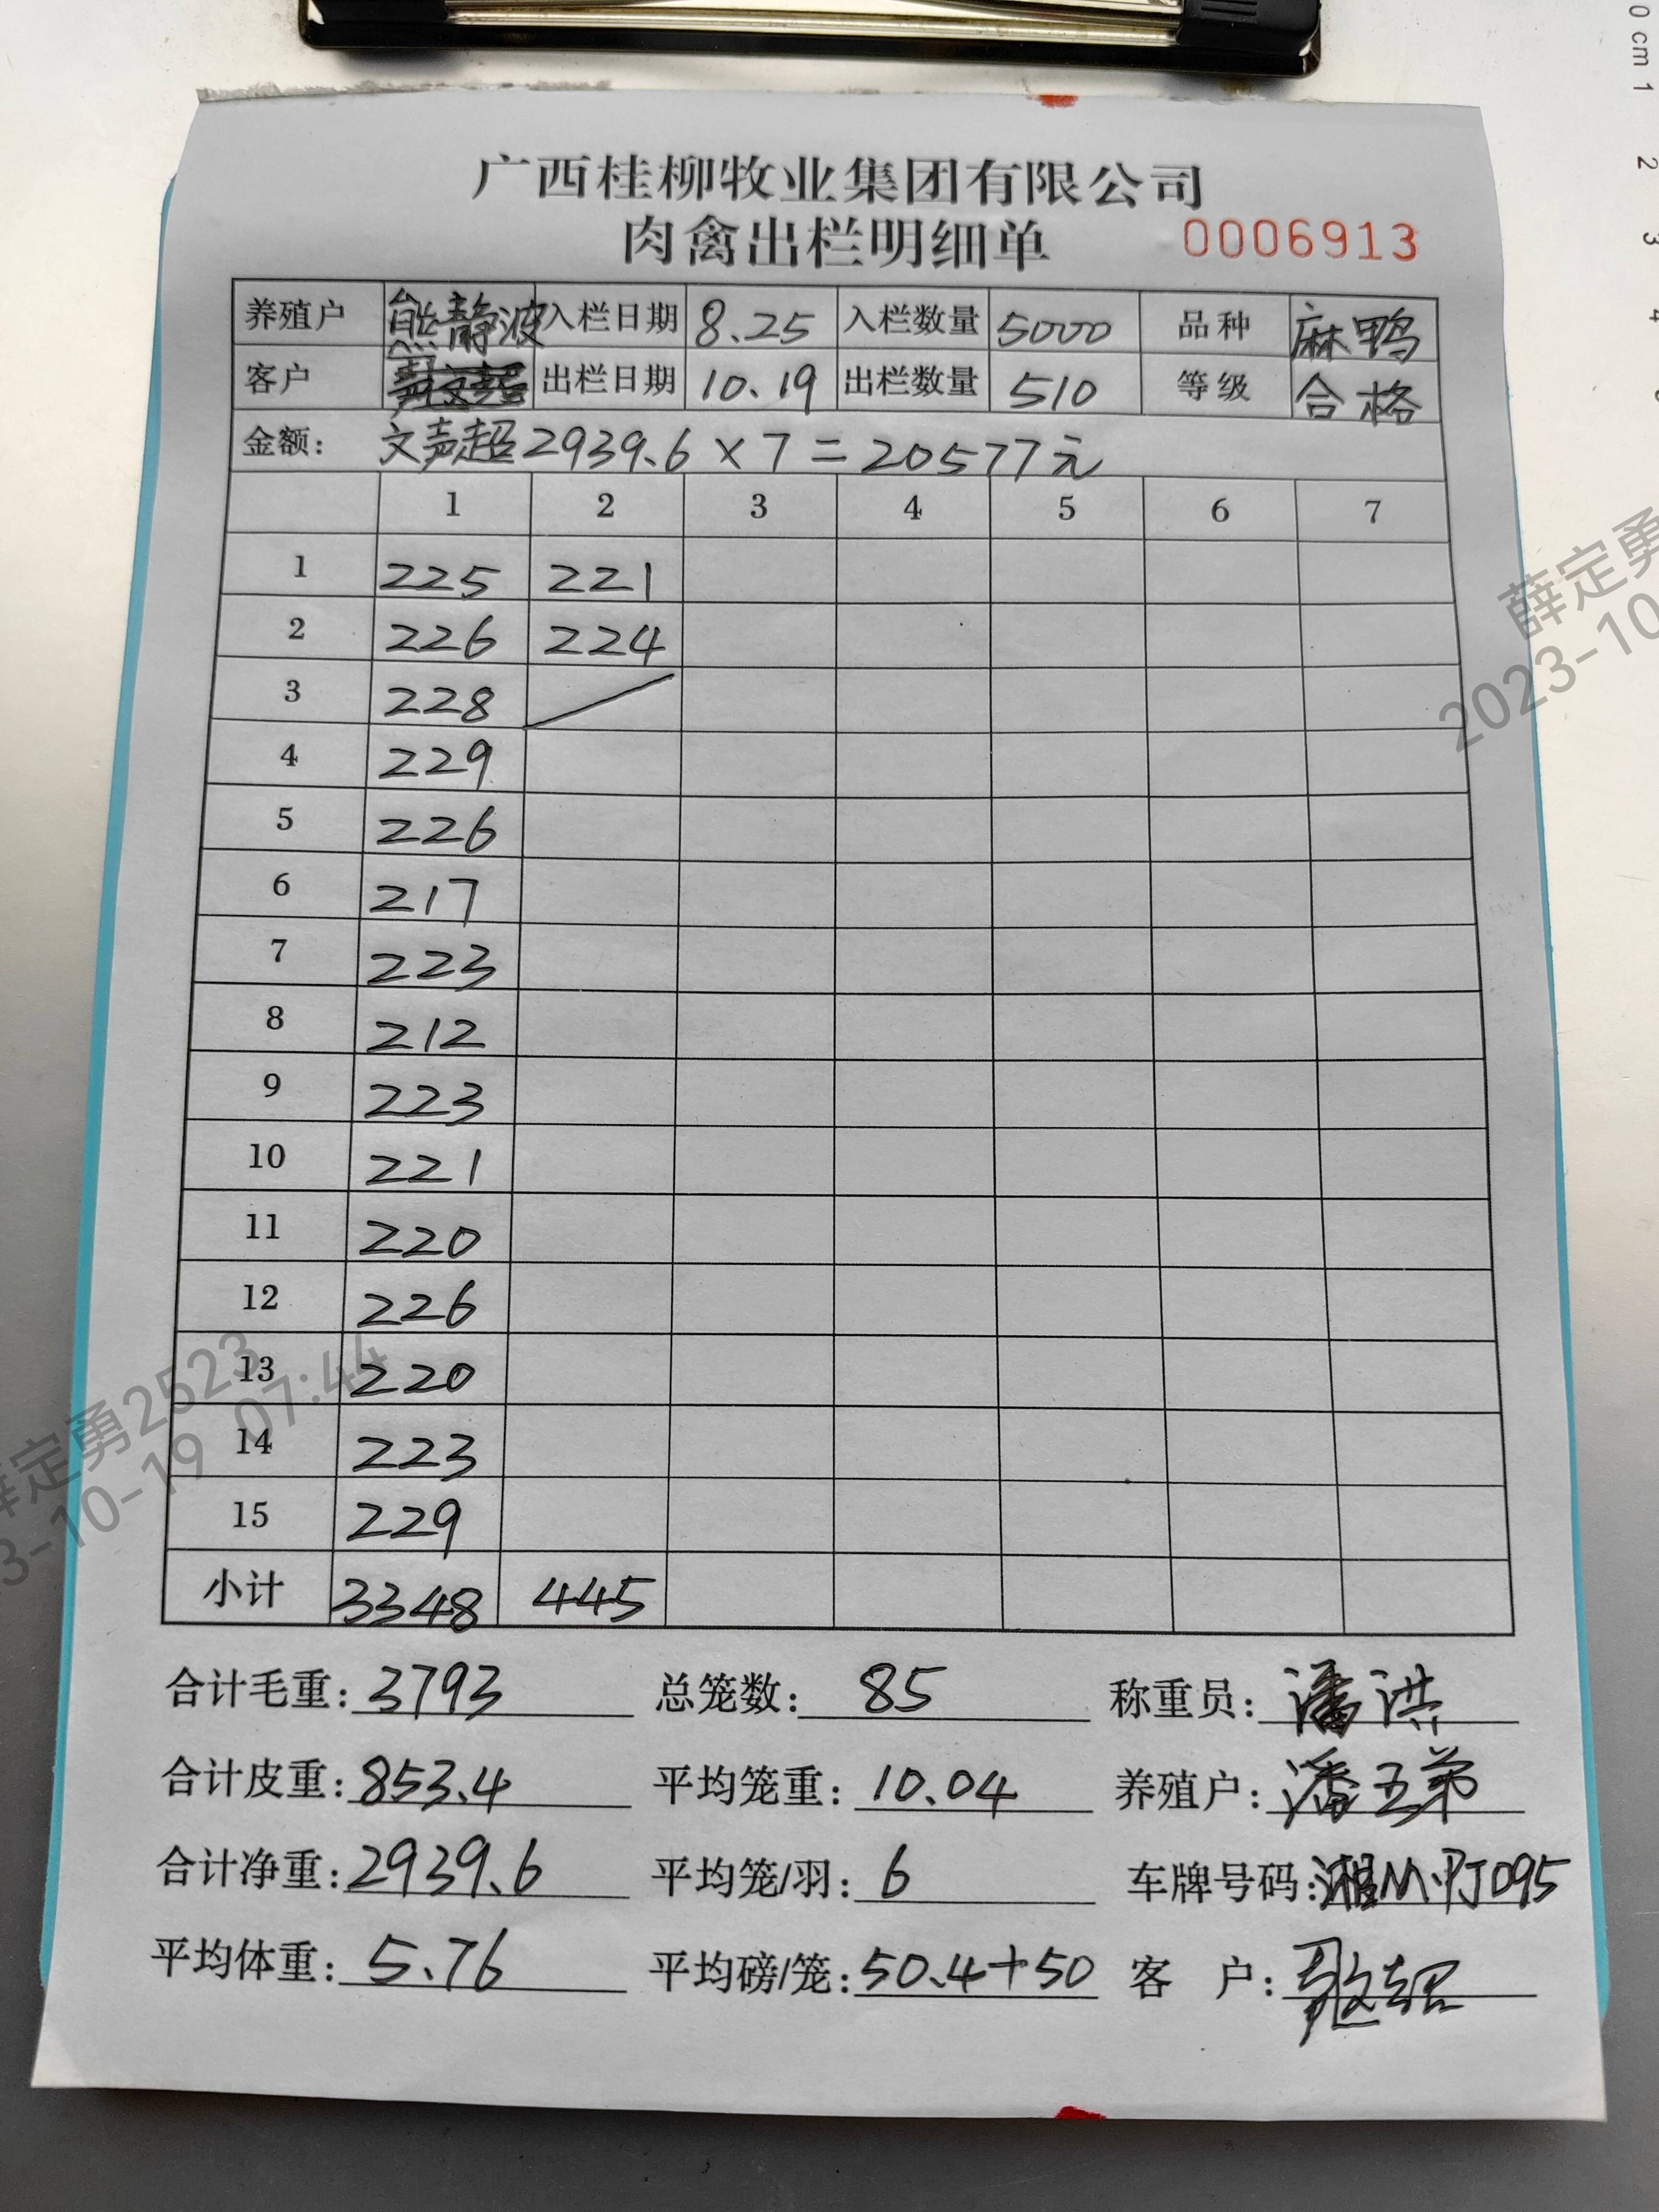 0 cm 1 2 3 4
广西桂柳牧业集团有限公司
肉禽出栏明细单 0006913
养殖户 熊静波 入栏日期 8.25 入栏数量 5000 品种 麻鸭
客户 出栏日期 10.19 出栏数量 510 等级 合格
金额: 文声超 2939.6 × 7 = 20577元
1 2 3 4 5 6 7
1 225 221
2 226 224
3 228
4 229
5 226
6 217
7 223
8 212
9 223
10 221
11 220
12 226
13 220
14 223
15 229
小计 3348 445
合计毛重: 3793 总笼数: 85 称重员: 潘洪
合计皮重: 853.4 平均笼重: 10.04 养殖户: 潘五弟
合计净重: 2939.6 平均笼/羽: 6 车牌号码: 湘M·PJ095
平均体重: 5.76 平均磅/笼: 50.4+50 客 户:
薛定勇
2023-10
薛定勇2523
3-10-19 07:44